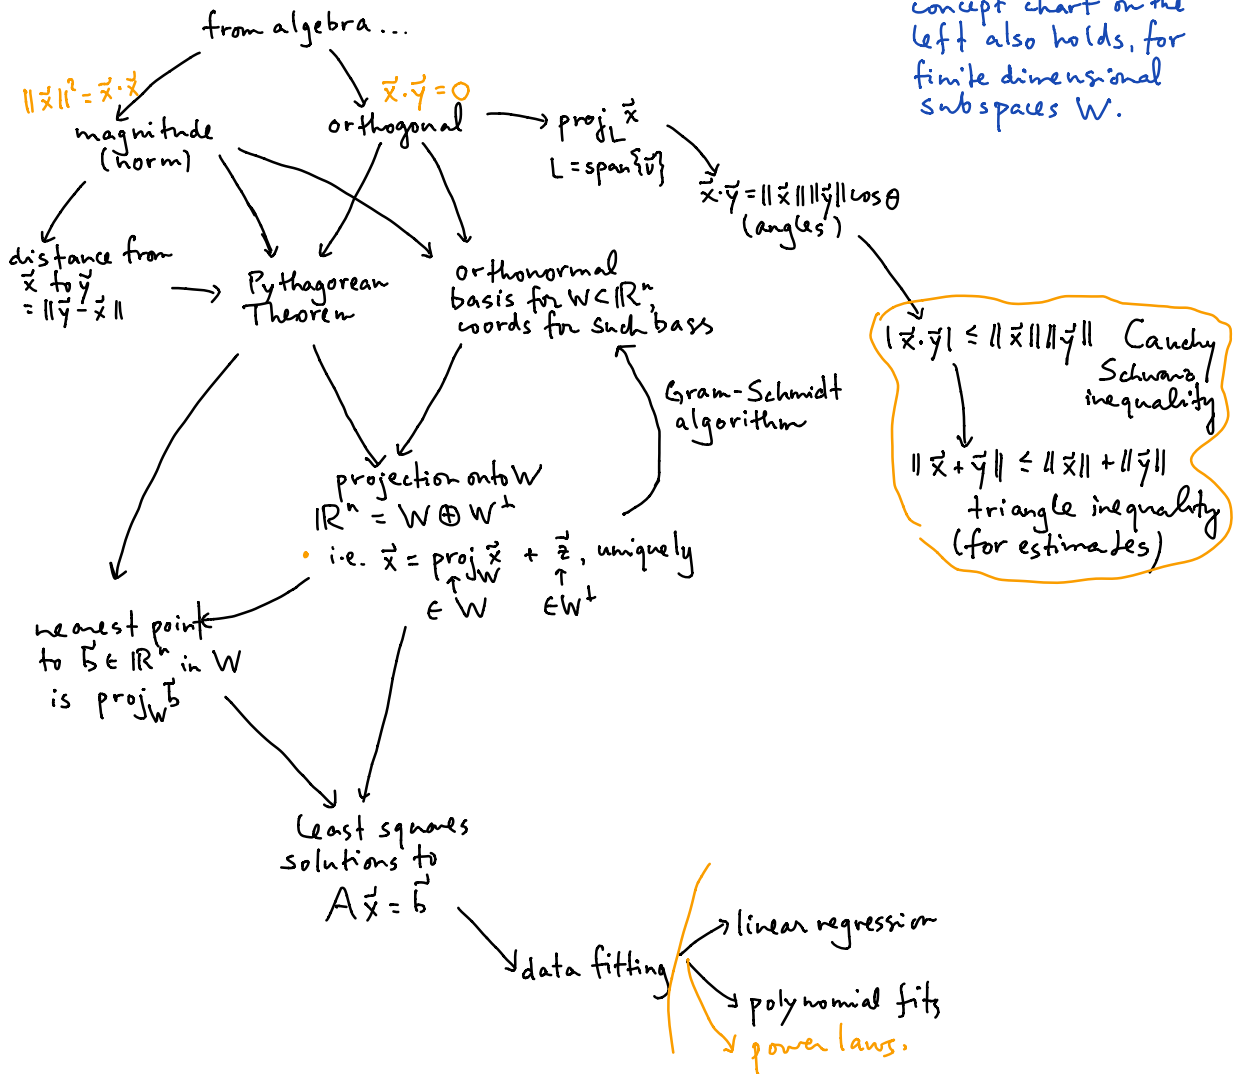 from algebra...
concept chart on the
left also holds, for
finite dimensional
subspaces W.
||x⃗||² = x⃗·x⃗
magnitude
(norm)
x⃗·y⃗ = 0
orthogonal
proj_L x⃗
L = span{v⃗}
x⃗·y⃗ = ||x⃗|| ||y⃗|| cos θ
(angles)
distance from
x⃗ to y⃗
= ||y⃗ - x⃗||
Pythagorean
Theorem
orthonormal
basis for W⊂ℝⁿ,
coords for such bass
|x⃗·y⃗| ≤ ||x⃗|| ||y⃗|| Cauchy
Schwarz
inequality
||x⃗ + y⃗|| ≤ ||x⃗|| + ||y⃗||
triangle inequality
(for estimates)
Gram-Schmidt
algorithm
projection onto W
ℝⁿ = W ⊕ W^⊥
i.e. x⃗ = proj_W x⃗ + z⃗, uniquely
∈ W ∈W^⊥
nearest point
to b⃗ ∈ ℝⁿ in W
is proj_W b⃗
least squares
solutions to
A x⃗ = b⃗
data fitting
linear regression
polynomial fits
power laws.